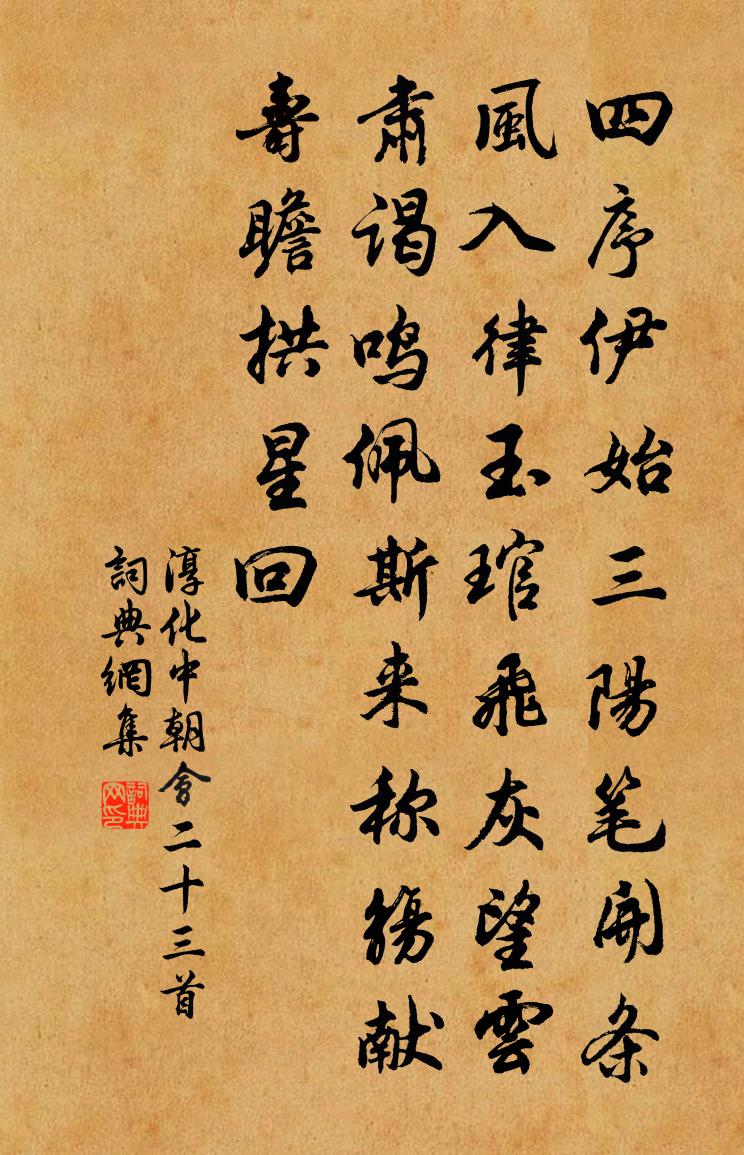 四序伊始三陽笔開条
風入律玉琯飛灰望雲
肅谒鸣佩斯来称觞献
壽瞻拱星回
淳化中朝會二十三首
詞典網集
詞典网印